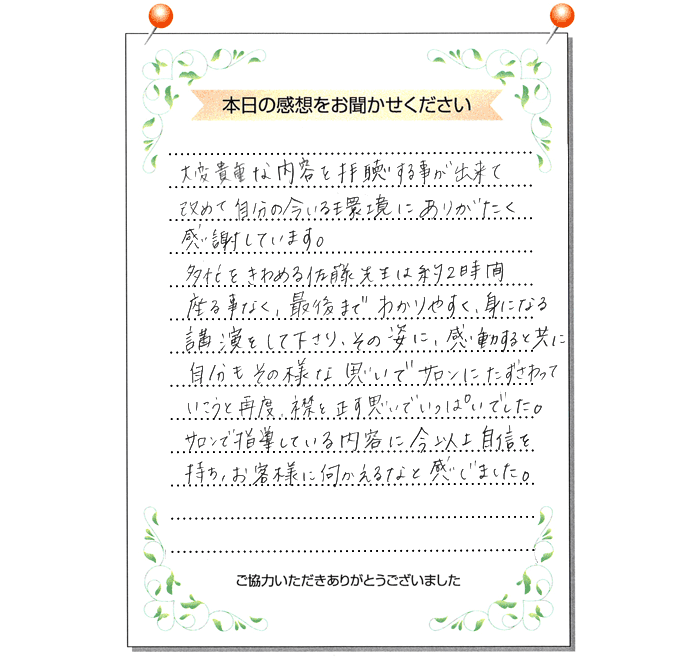 本日の感想をお聞かせください
大変貴重な内容を拝聴する事が出来て
改めて自分の今いる環境にありがたく
感謝しています。
多忙をきわめる佐藤先生は約2時間
座る事なく、最後までわかりやすく、身になる
講演をして下さり、その姿に、感動すると共に
自分もその様な思いでサロンにたずさわって
いこうと再度、襟を正す思いでいっぱいでした。
サロンで指導している内容に今以上自信を
持ち、お客様に向かえるなと感じました。
ご協力いただきありがとうございました